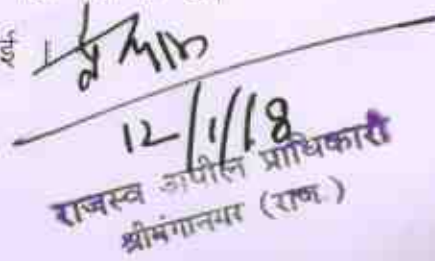 12/1/18
राजस्व अपील प्राधिकारी
श्रीगंगानगर (राज.)